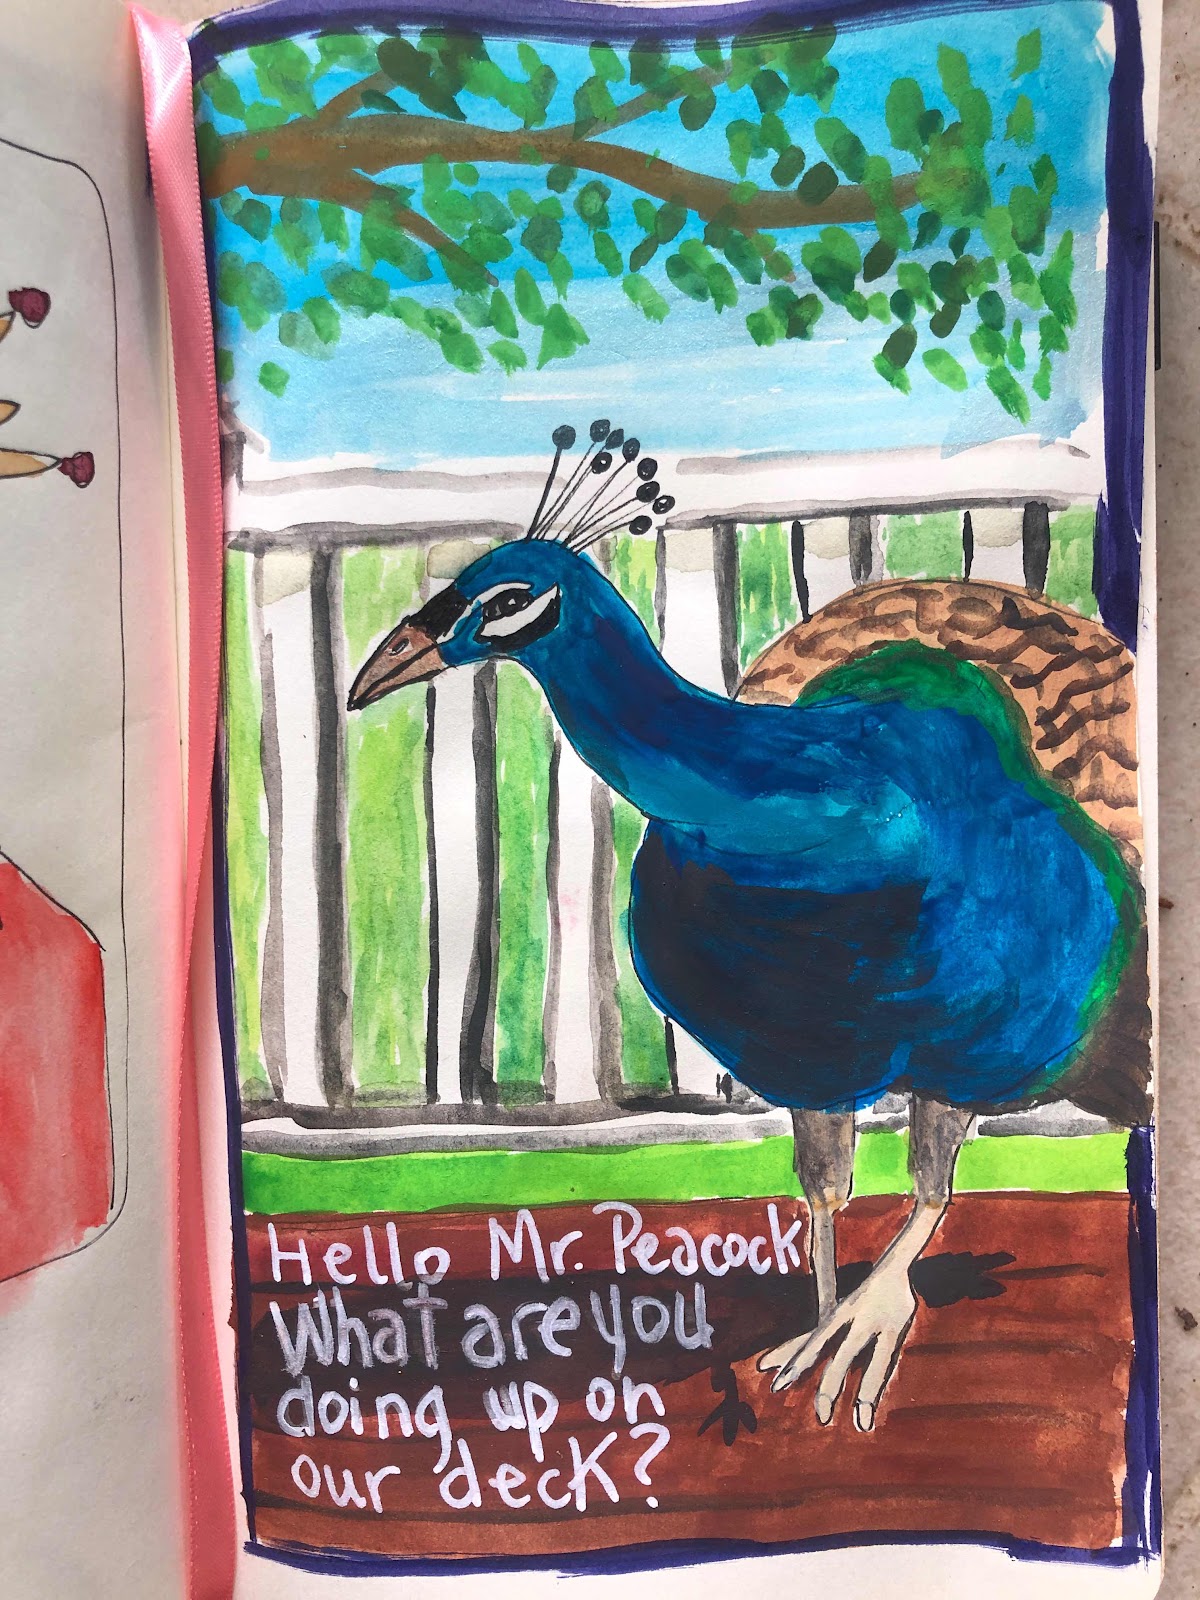 Hello Mr. Peacock
What are you
doing up on
our deck?